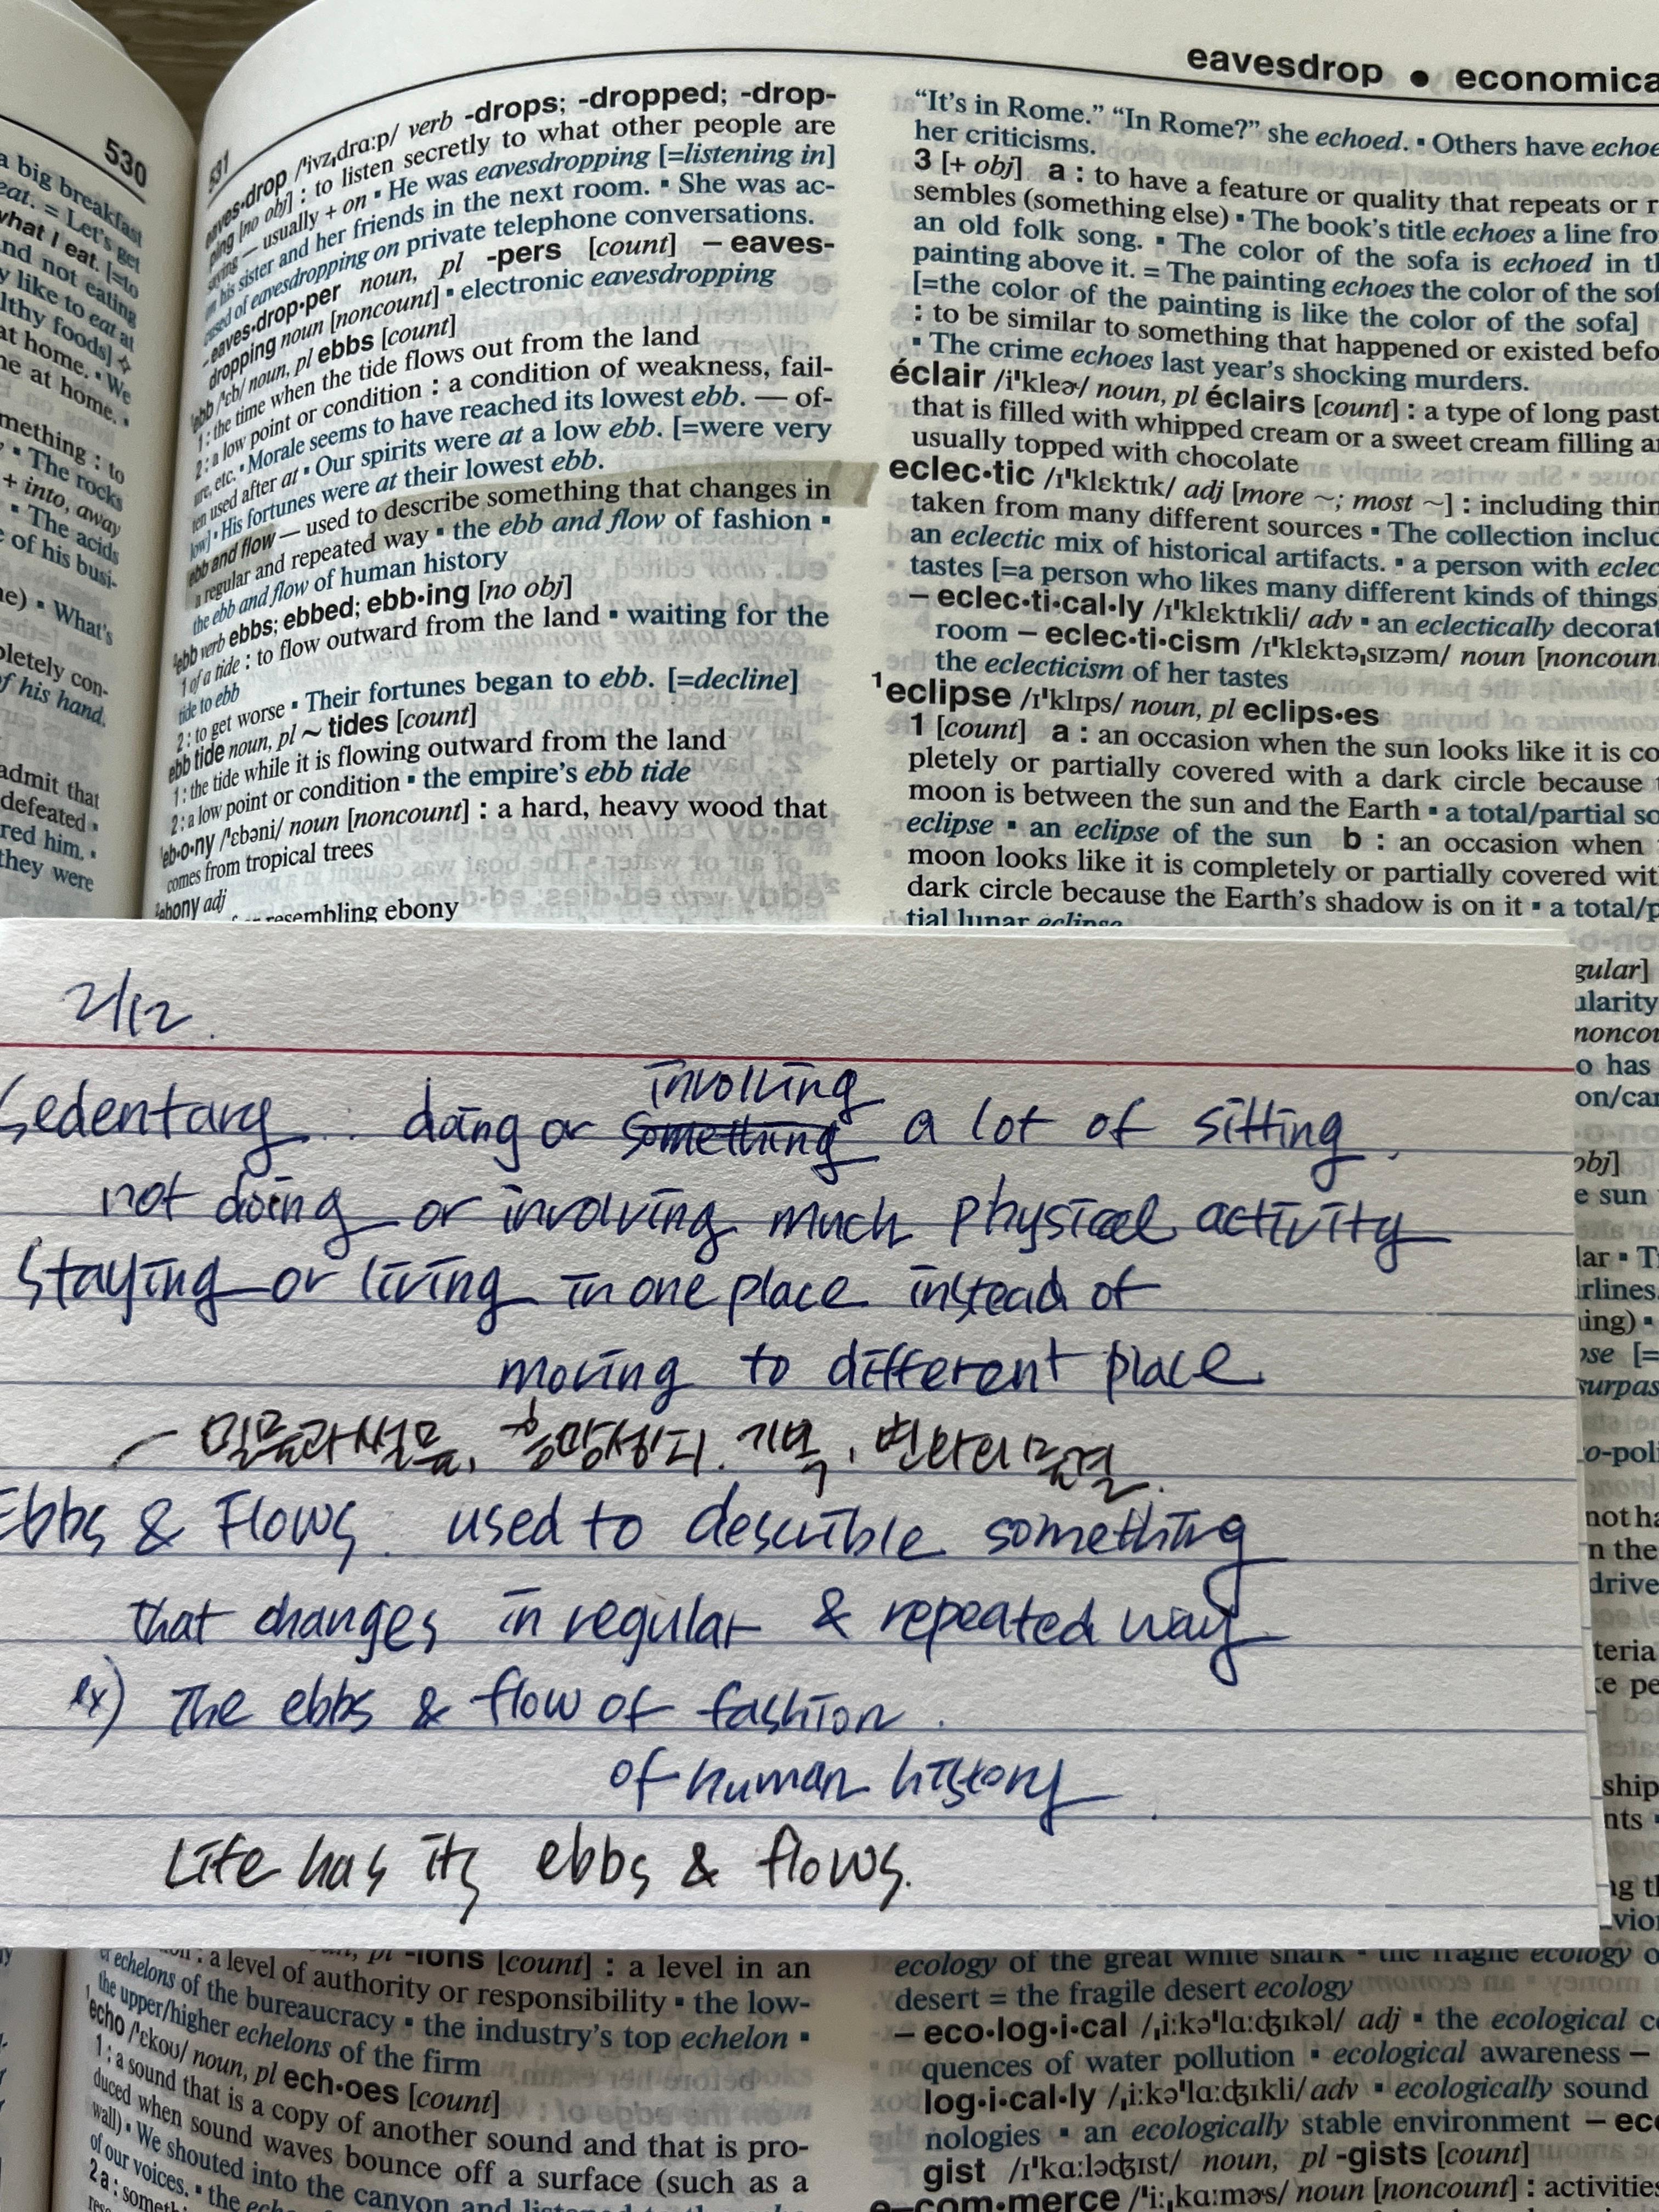 530
a big breakfast
eat. = Let's get
what I eat. [=to
and not eating
y like to eat at
lthy foods]
at home. ▪ We
me at home. ▪
mething : to
▪ The rocks
+ into, away
▪ The acids
of his busi-
▪ What's
pletely con-
of his hand.
admit that
defeated ▪
red him. ▪
they were
531
eavesdrop ● economica
eaves·drop /ˈiːvzˌdrɑːp/ verb -drops; -dropped; -drop-
ping [no obj] : to listen secretly to what other people are
saying — usually + on ▪ He was eavesdropping [=listening in]
on his sister and her friends in the next room. ▪ She was ac-
cused of eavesdropping on private telephone conversations.
– eaves·drop·per noun, pl -pers [count] – eaves-
dropping noun [noncount] ▪ electronic eavesdropping
¹ebb /ˈɛb/ noun, pl ebbs [count]
1 : the time when the tide flows out from the land
2 : a low point or condition : a condition of weakness, fail-
ure, etc. ▪ Morale seems to have reached its lowest ebb. — of-
ten used after at ▪ Our spirits were at a low ebb. [=were very
low] ▪ His fortunes were at their lowest ebb.
ebb and flow — used to describe something that changes in
a regular and repeated way ▪ the ebb and flow of fashion ▪
the ebb and flow of human history
²ebb verb ebbs; ebbed; ebb·ing [no obj]
1 of a tide : to flow outward from the land ▪ waiting for the
tide to ebb
2 : to get worse ▪ Their fortunes began to ebb. [=decline]
ebb tide noun, pl ~ tides [count]
1 : the tide while it is flowing outward from the land
2 : a low point or condition ▪ the empire's ebb tide
¹eb·o·ny /ˈɛbəni/ noun [noncount] : a hard, heavy wood that
comes from tropical trees
²ebony adj
resembling ebony
"It's in Rome." "In Rome?" she echoed. ▪ Others have echoe
her criticisms.
3 [+ obj] a : to have a feature or quality that repeats or r
sembles (something else) ▪ The book's title echoes a line fro
an old folk song. ▪ The color of the sofa is echoed in th
painting above it. = The painting echoes the color of the sof
[=the color of the painting is like the color of the sofa]
: to be similar to something that happened or existed befo
▪ The crime echoes last year's shocking murders.
éclair /iˈkleɚ/ noun, pl éclairs [count] : a type of long past
that is filled with whipped cream or a sweet cream filling an
usually topped with chocolate
eclec·tic /ɪˈklɛktɪk/ adj [more ~; most ~] : including thin
taken from many different sources ▪ The collection includ
an eclectic mix of historical artifacts. ▪ a person with eclec
tastes [=a person who likes many different kinds of things
– eclec·ti·cal·ly /ɪˈklɛktɪkli/ adv ▪ an eclectically decorat
room – eclec·ti·cism /ɪˈklɛktəˌsɪzəm/ noun [noncoun
the eclecticism of her tastes
¹eclipse /ɪˈklɪps/ noun, pl eclips·es
1 [count] a : an occasion when the sun looks like it is co
pletely or partially covered with a dark circle because t
moon is between the sun and the Earth ▪ a total/partial so
eclipse ▪ an eclipse of the sun b : an occasion when
moon looks like it is completely or partially covered wit
dark circle because the Earth's shadow is on it ▪ a total/p
tial lunar eclipse
2/12.
Sedentary : doing or something involving a lot of sitting,
not doing or involving much physical activity
staying or living in one place instead of
moving to different place
– 밀물과 썰물, 흥망성쇠, 기복, 변화의 물결.
Ebbs & Flows : used to describle something
that changes in regular & repeated way
ex) The ebbs & flow of fashion.
of human history.
Life has its ebbs & flows.
gular]
ularity
noncou
o has
on/can
obj]
e sun
lar ▪ T
irlines.
ing) ▪
ose [=
surpas
o-poli
not ha
n the
drive
teria
ke pe
ship
nts ▪
ng th
vior
-ions [count] : a level in an
: a level of authority or responsibility ▪ the low-
er echelons of the bureaucracy ▪ the industry's top echelon ▪
the upper/higher echelons of the firm
¹echo /ˈɛkoʊ/ noun, pl ech·oes [count]
1 : a sound that is a copy of another sound and that is pro-
duced when sound waves bounce off a surface (such as a
wall) ▪ We shouted into the canyon and listened to the
of our voices. ▪ the echo
2 a : someth
ecology of the great white shark ▪ the fragile ecology o
desert = the fragile desert ecology
– eco·log·i·cal /ˌiːkəˈlɑːʤɪkəl/ adj ▪ the ecological co
quences of water pollution ▪ ecological awareness –
log·i·cal·ly /ˌiːkəˈlɑːʤɪkli/ adv ▪ ecologically sound
nologies ▪ an ecologically stable environment – eco
gist /ɪˈkɑːləʤɪst/ noun, pl -gists [count]
e–com·merce /ˈiːˌkɑːmɚs/ noun [noncount] : activities